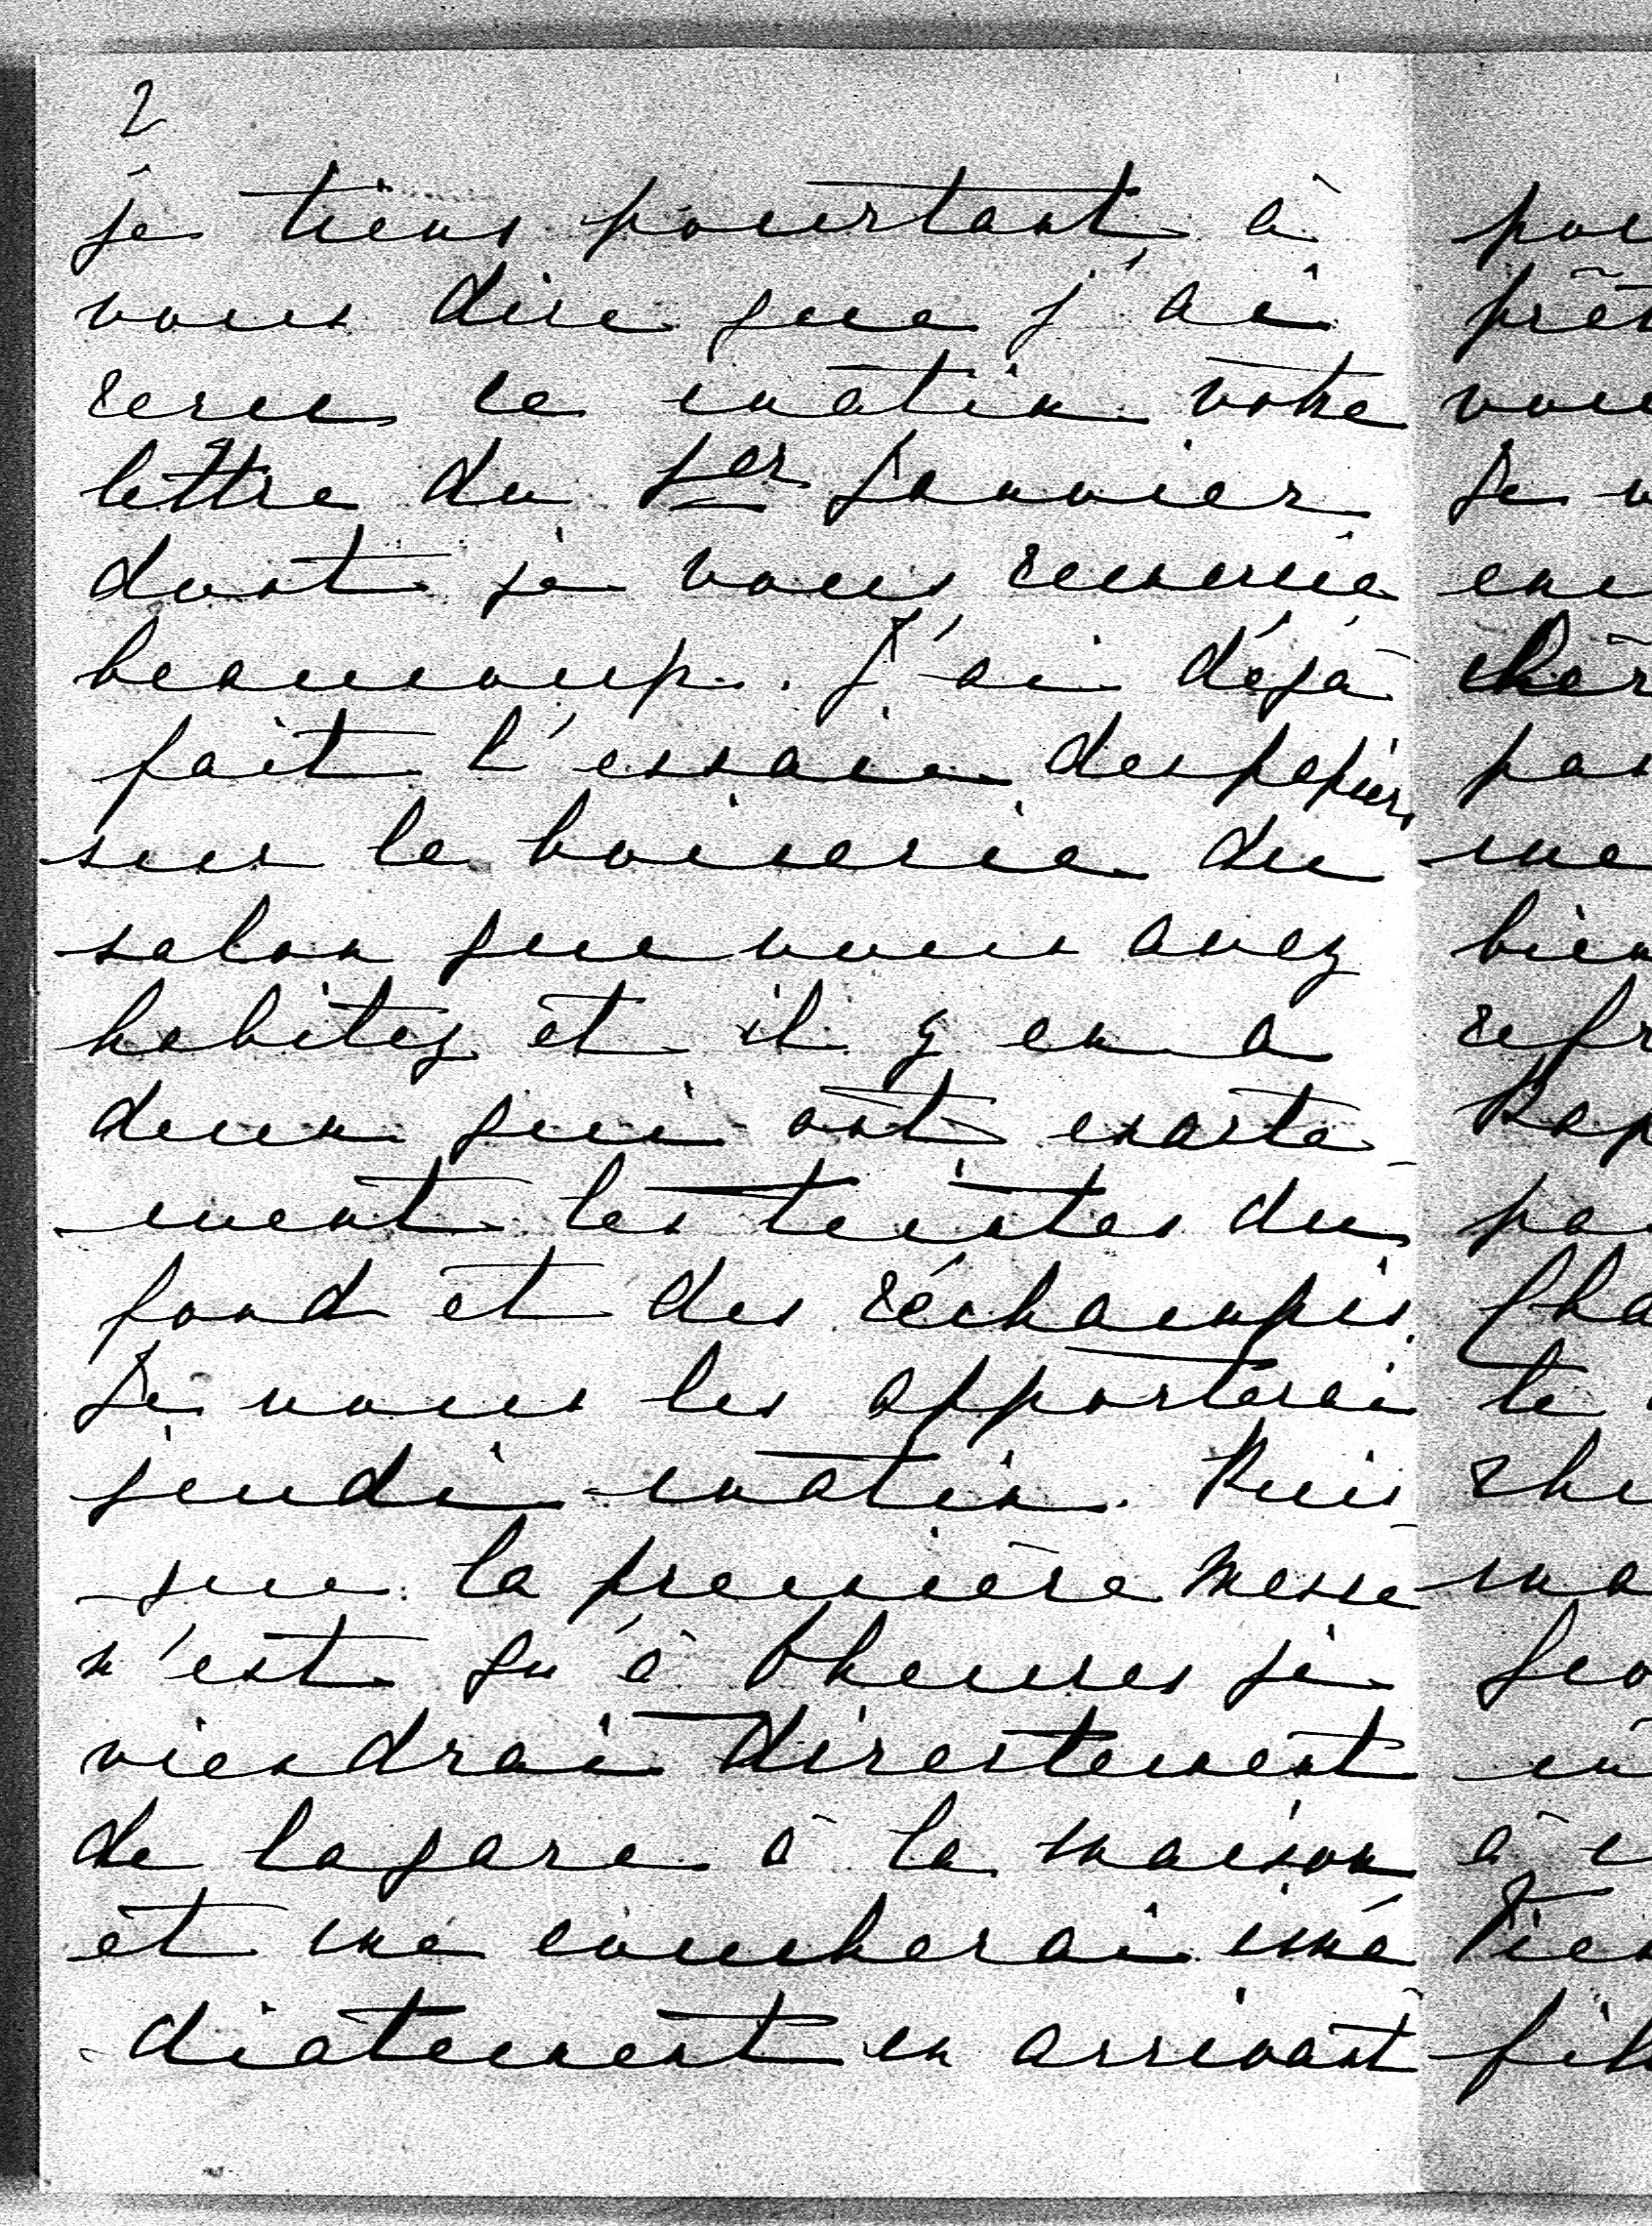 2
je tiens pourtant à
vous dire que j'ai
recu ce matin votre
lettre du 1er Janvier
dont je vous remercie
beaucoup. J'ai déjà
fait l'essai des papiers
sur la boiserie du
salon que vous avez
habitez et il y en a
deux qui ont exacte-
-ment les teintes du
fond et des réchampis.
Je vous les apporterai
jeudi matin. Puis-
-que la première Messe
n'est qu'à heures je
viendrai directement
de la gare à la maison
et me coucherai imé-
-diatement en arrivant